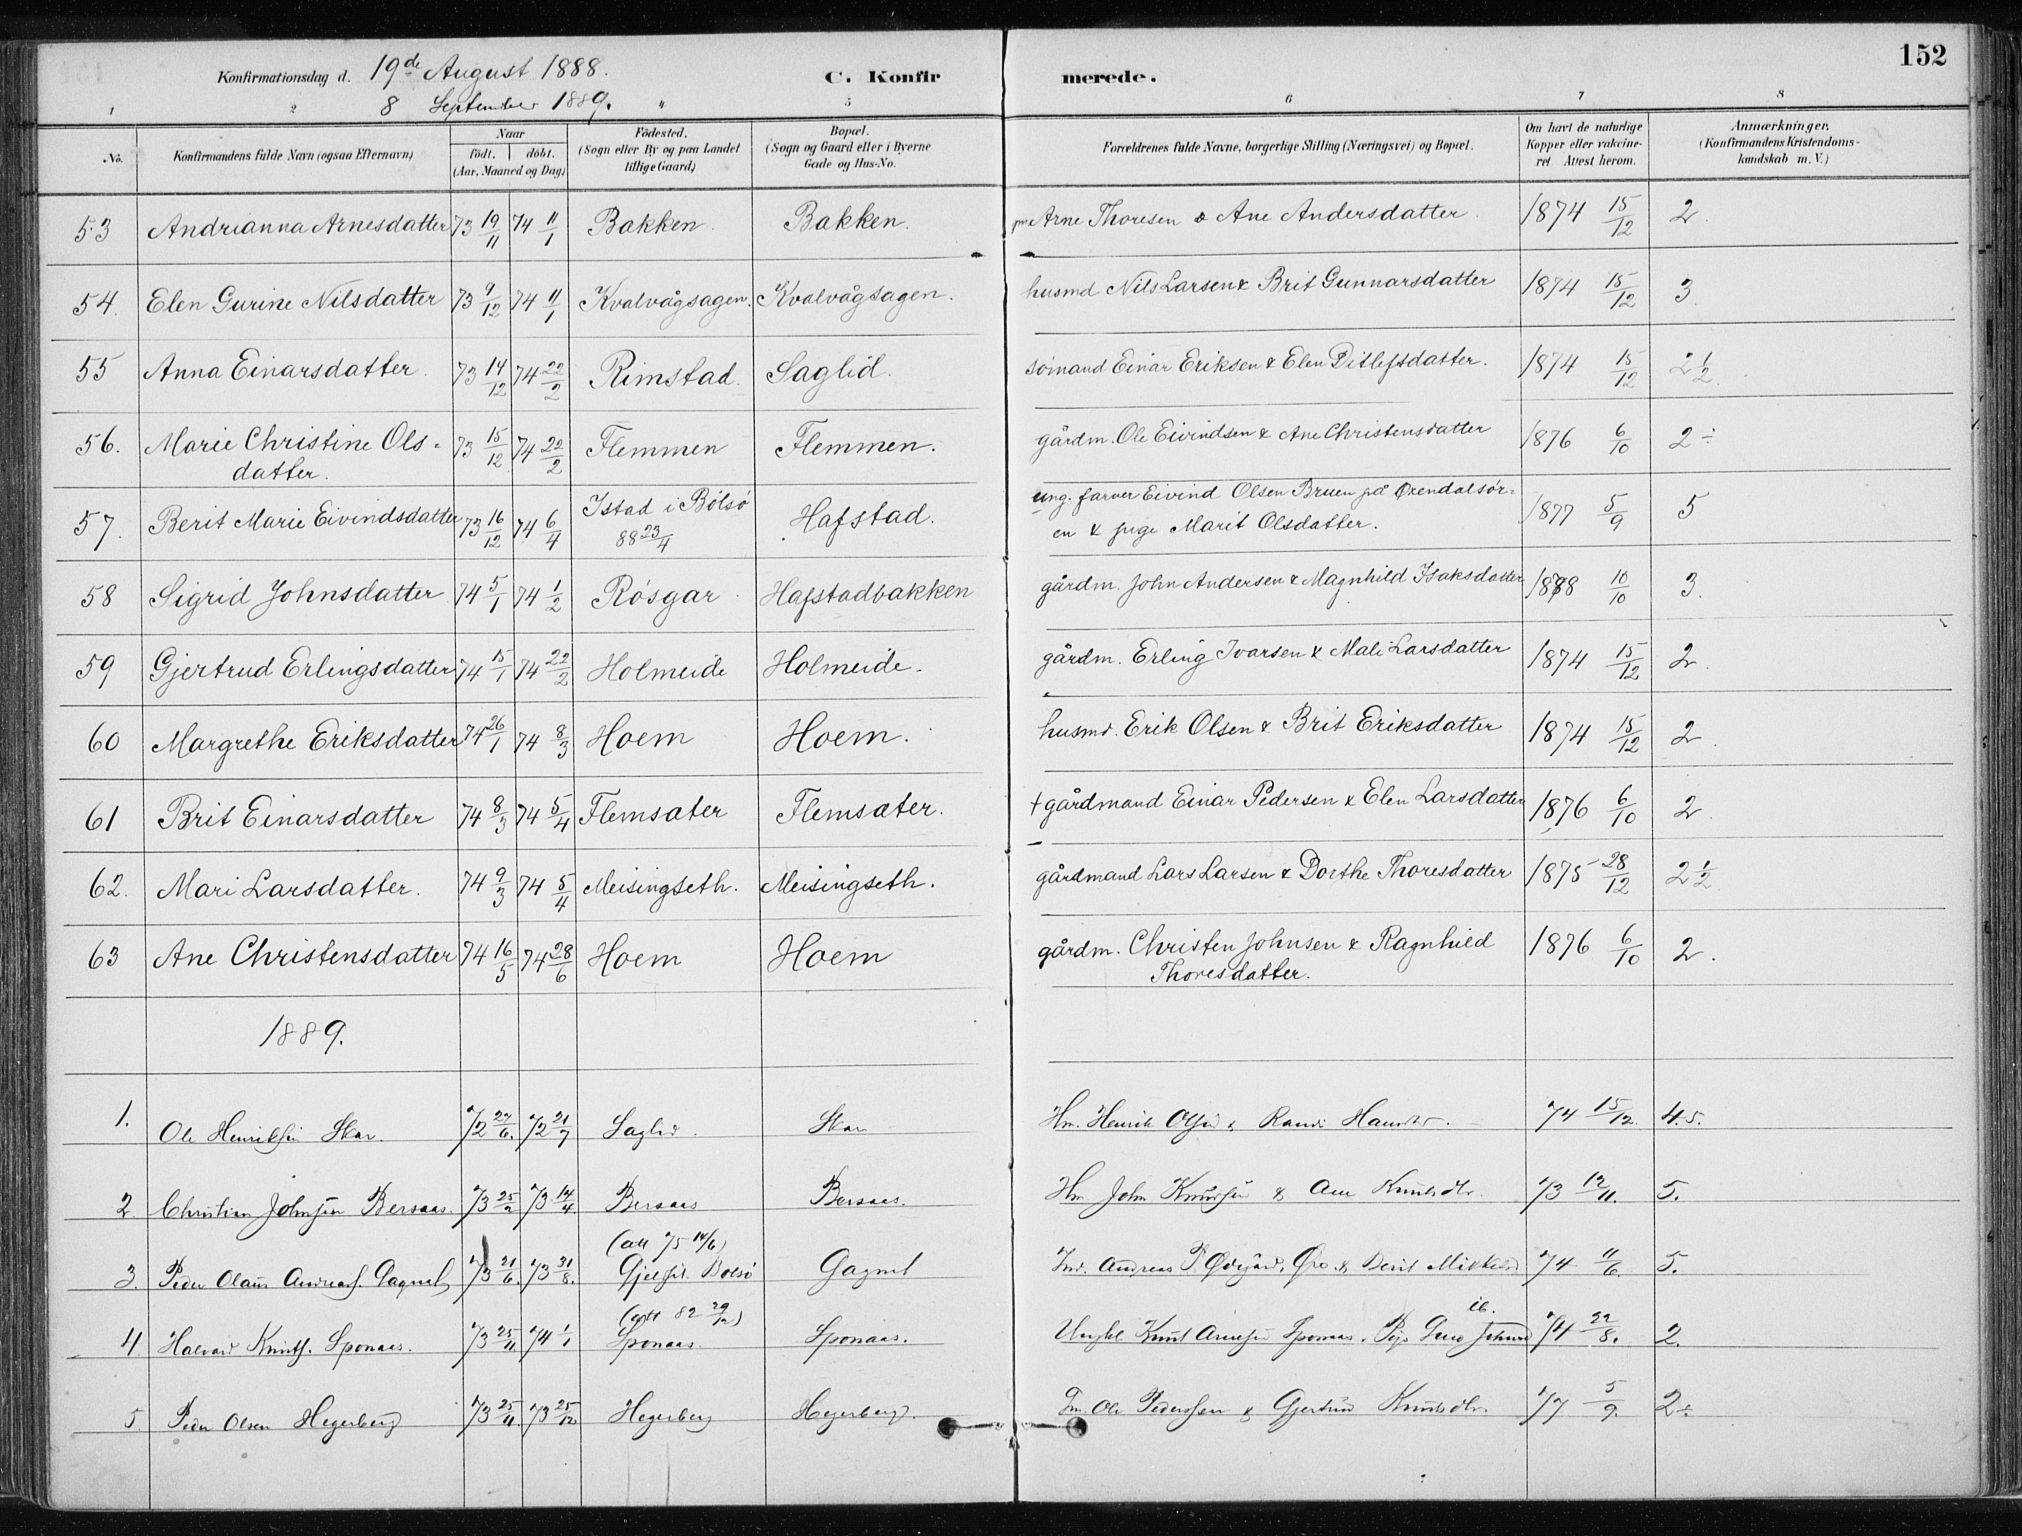 152
Konfirmationsdag d. 19de August 1888. C. Konfir merede.
8 September 1889. "
1 2 5 6 7 8
No. Konfirmandens fulde Navn (ogsaa Efternavn) Naar født. døbt. (Aar, Maaned og Dag) Fødested. (Sogn eller By og paa Landet tillige Gaard) Bopæl. (Sogn og Gaard eller i Byerne Gade og Hus-No. Forældrenes fulde Navne, borgerlige Stilling (Næringsvei) og Bopæl. Om havt de naturlige Kopper eller vakcineret Attest herom. Anmærkninger. (Konfirmandens Kristendomskundskab m. V.)
53 Andrianna Arnesdatter 73 19/11 74 11/1 Bakken. Bakken. Arne Thoresen & Ane Andersdatter. 1874 15/12 2.
54. Elen Gurine Nilsdatter 73 9/12 74 11/1 Kvalvågsagen. Kvalvågsagen. husmd Nils Larsen & Brit Gunnarsdatter 1874 15/12 3.
55 Anna Einarsdatter. 73 14/12 74 22/2 Rimstad. Saglid. sømand Einar Eriksen & Elen Ditlefsdatter. 1874 15/12 2 1/2.
56. Marie Christine Ols-
datter. 73 15/12 74 22/2 Flemmen Flemmen. gårdm. Ole Eivindsen & Ane Christensdatter 1876 6/10 2÷
57. Berit Marie Eivindsdatter 73 16/12 74 6/4 Istad i Bolsø Hafstad. ung. farver Eivind Olsen Bruen på Øxendalsør=
88 23/4 en & pige Marit Olsdatter. 1877 5/9 5
58 Sigrid Johnsdatter 74 5/1 74 1/2 Røsgar Hafstadbakken gårdm. John Andersen & Magnhild Isaksdatter 1888 10/10 3.
59 Gjertrud Erlingsdatter 74 15/1 74 22/2 Holmeide Holmeide. gårdm. Erling Ivarsen & Mali Larsdatter 1874 15/12 2.
60 Margrethe Eriksdatter 74 26/1 74 8/3 Hoem Hoem. husmd. Erik Olsen & Brit Eriksdatter 1874 15/12 2.
61 Brit Einarsdatter 74 8/3 74 5/4 Flemsæter Flemsæter. † gårdmand Einar Pedersen & Elen Larsdatter 1876 6/10 2.
62. Mari Larsdatter. 74 9/3 74 5/4 Meisingseth. Meisingseth. gårdmand Lars Larsen & Dorthe Thoresdatter 1875 28/12 2 1/2.
63 Ane Christensdatter 74 16/5 74 28/6 Hoem Hoem gårdm. Christen Johnsen & Ragnhild
Thoresdatter. 1876 6/10 2.
1889.
1. Ole Henriksen Skar. 72 /6. 72 21/7 Saglid. Skar Hm. Henrik Olsen & Randi 74 15/12. 4.5.
2. Christian Johnsen Bersaas. 73 25/2 73 14/4 Bersaas Bersaas. Hm. John Knudsen & Ane Knudsdtr. 73 12/11. 5.
3. Peder Olaus 73 21/6. 73 31/8. (att 75 14/6)
Bolsø Andreas Berit 74 11/6. 5.
4. Halvard Knuts. Sponaas. 73 25/11. 74 1/1 (att 82 29/12)
Sponaas. Sponaas. Ungkl. Knut Arnesen Sponaas. ib. 74 22/8. 2.
5. Peder Olsen Hegerberg 73 25/11. 73 25/12 Hegerberg Hegerberg. Ole Pedersen & Gjertrud Knudsdtr. 77 5/9. 2÷